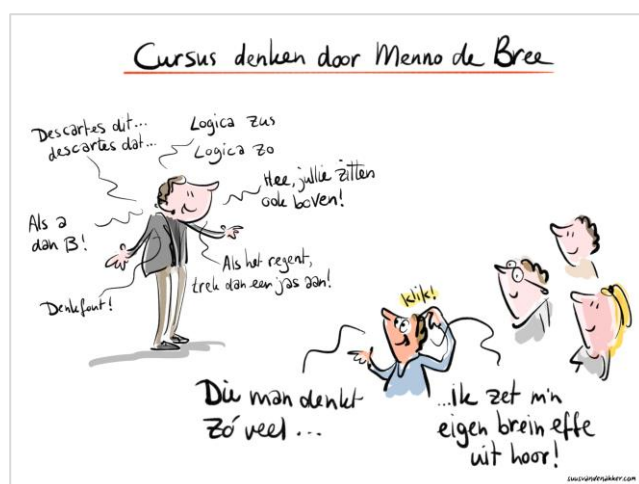 Cursus denken door Menno de Bree
Descartes dit...
descartes dat...
Logica zus
Logica zo
Hee, jullie zitten
ook boven!
Als a
dan B!
Als het regent,
trek dan een jas aan!
Denkfout!
Klik!
Die man denkt
zó veel...
...ik zet m'n
eigen brein effe
uit hoor!
suusvandenakker.com